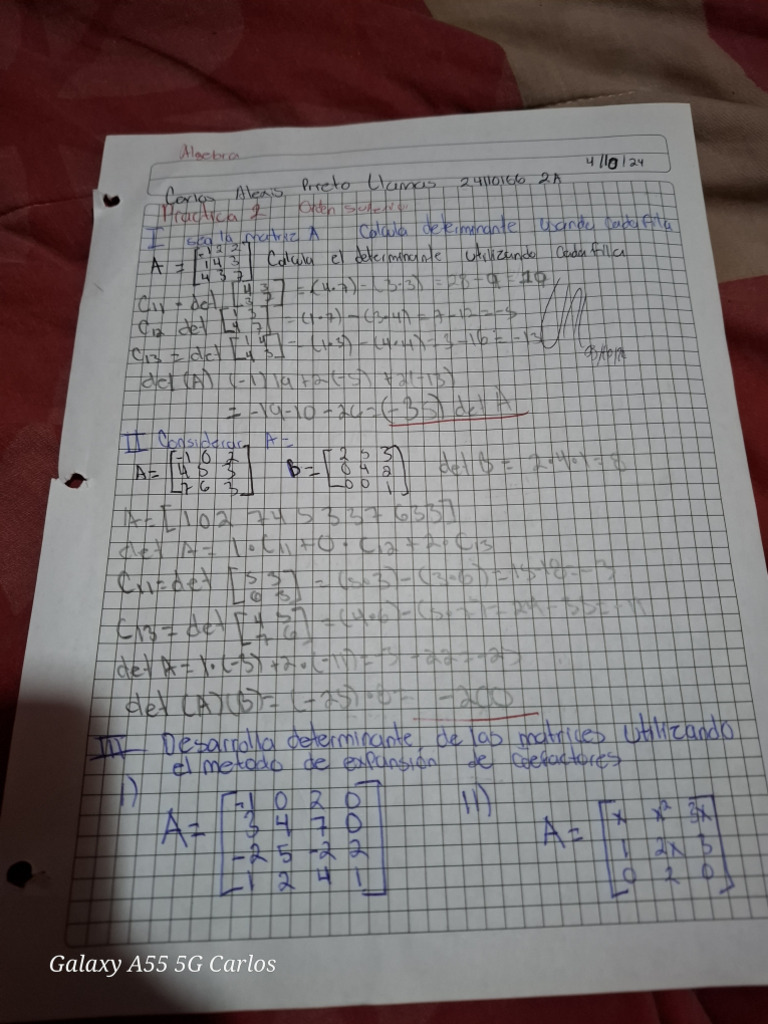 Algebra
4/10/24
Carlos Alexis Prieto Llamas 24110166 2A
Practica 2 Orden
I sea la matriz A Calcula determinante usando cada fila
A = [-1 2 2 Calcula el determinante utilizando cada filla
1 4 3
4 3 7]
C11 = det [4 3 = (4·7) - (3·3) = 28 - 9 = 19
3 7]
C12 det [1 3 = (1·7) - (3·4) = 7 - 12 = -5
4 7]
C13 = det [1 4 = (1·3) - (4·4) = 3 - 16 = -13
4 3]
det (A) (-1) 19 + 2(-5) + 2(-13)
= -19 - 10 - 26 = (-35) det A
II Considerar A =
A = [-1 0 2 B = [2 5 3 det B = 2·4·1 = 8
4 5 3 0 4 2
7 6 3] 0 0 1]
det A = 1·C11 + 0·C12 + 2·C13
C11 = det [5 3 = (5·3) - (3·6) = 15 - 18 = -3
6 3]
C13 = det [4 5 = (4·6) - (5·7) = 24 - 35 = -11
7 6]
det A = 1·(-3) + 2·(-11) = -3 - 22 = -25
det (A)(B) = (-25)·8 = -200
III Desarrolla determinante de las matrices utilizando
el metodo de expansión de coefactores
I) A = [-1 0 2 0
3 4 7 0
-2 5 -2 2
-1 2 4 1]
II) A = [x x² 3x
1 2x 3
0 2 0]
Galaxy A55 5G Carlos